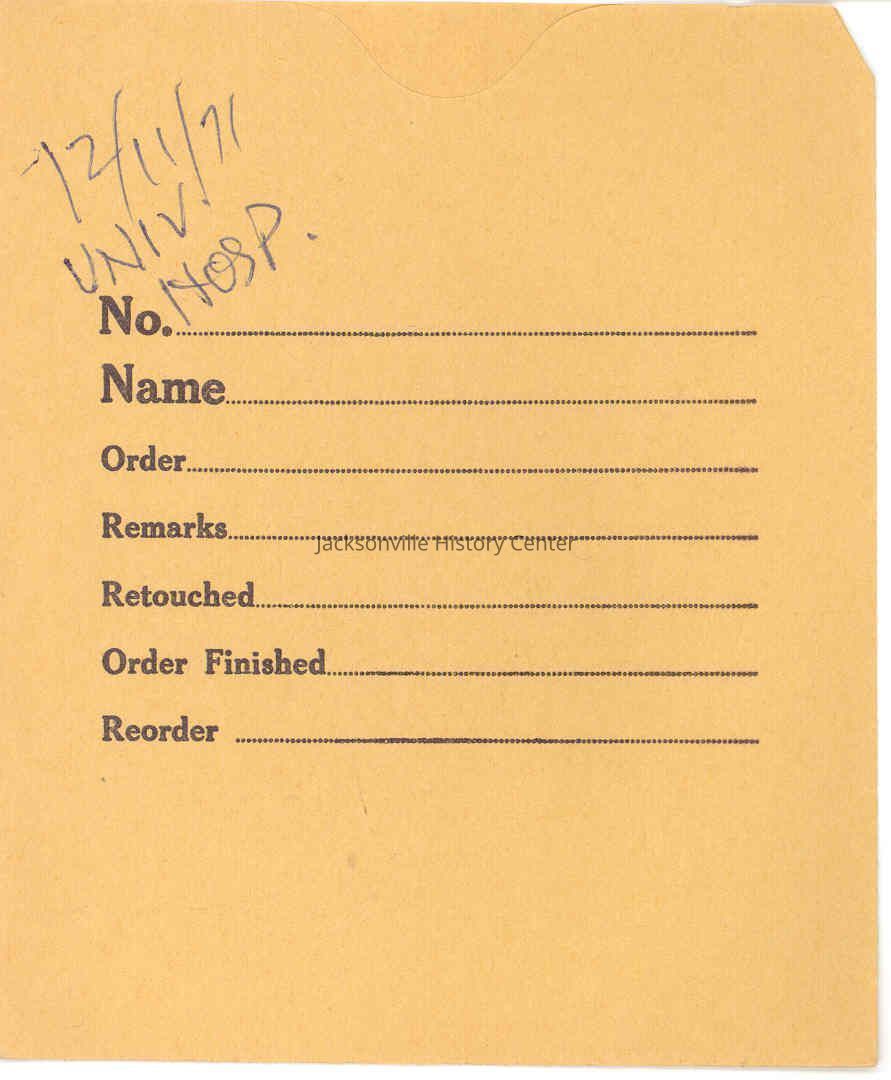 12/11/71
UNIV.
HOSP.
No.
Name
Order
Remarks
Jacksonville History Center
Retouched
Order Finished
Reorder